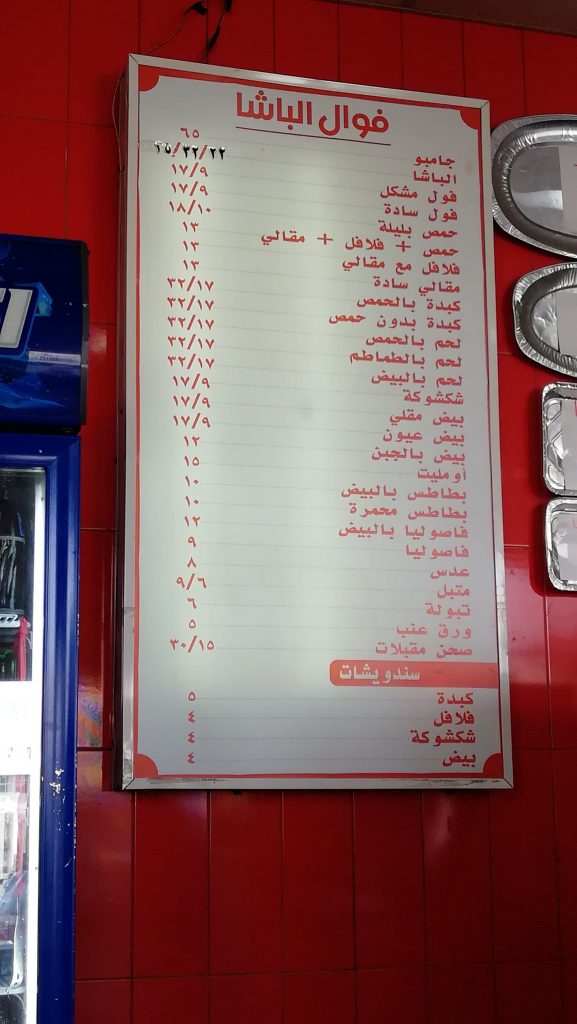 فوال الباشا
جامبو ٦٥
الباشا ٣٥/٣٢/٢٢
فول مشكل ١٧/٩
فول سادة ١٧/٩
حمص بليلة ١٨/١٠
حمص + فلافل + مقالي ١٣
فلافل مع مقالي ١٣
مقالي سادة ١٣
كبدة بالحمص ٣٢/١٧
كبدة بدون حمص ٣٢/١٧
لحم بالحمص ٣٢/١٧
لحم بالطماطم ٣٢/١٧
لحم بالبيض ٣٢/١٧
شكشوكة ١٧/٩
بيض مقلي ١٧/٩
بيض عيون ١٧/٩
بيض بالجبن ١٢
أومليت ١٥
بطاطس بالبيض ١٠
بطاطس محمرة ١٠
فاصوليا بالبيض ١٢
فاصوليا ٩
عدس ٨
متبل ٩/٦
تبولة ٦
ورق عنب ٥
صحن مقبلات ٣٠/١٥
سندويشات
كبدة ٥
فلافل ٤
شكشوكة ٤
بيض ٤